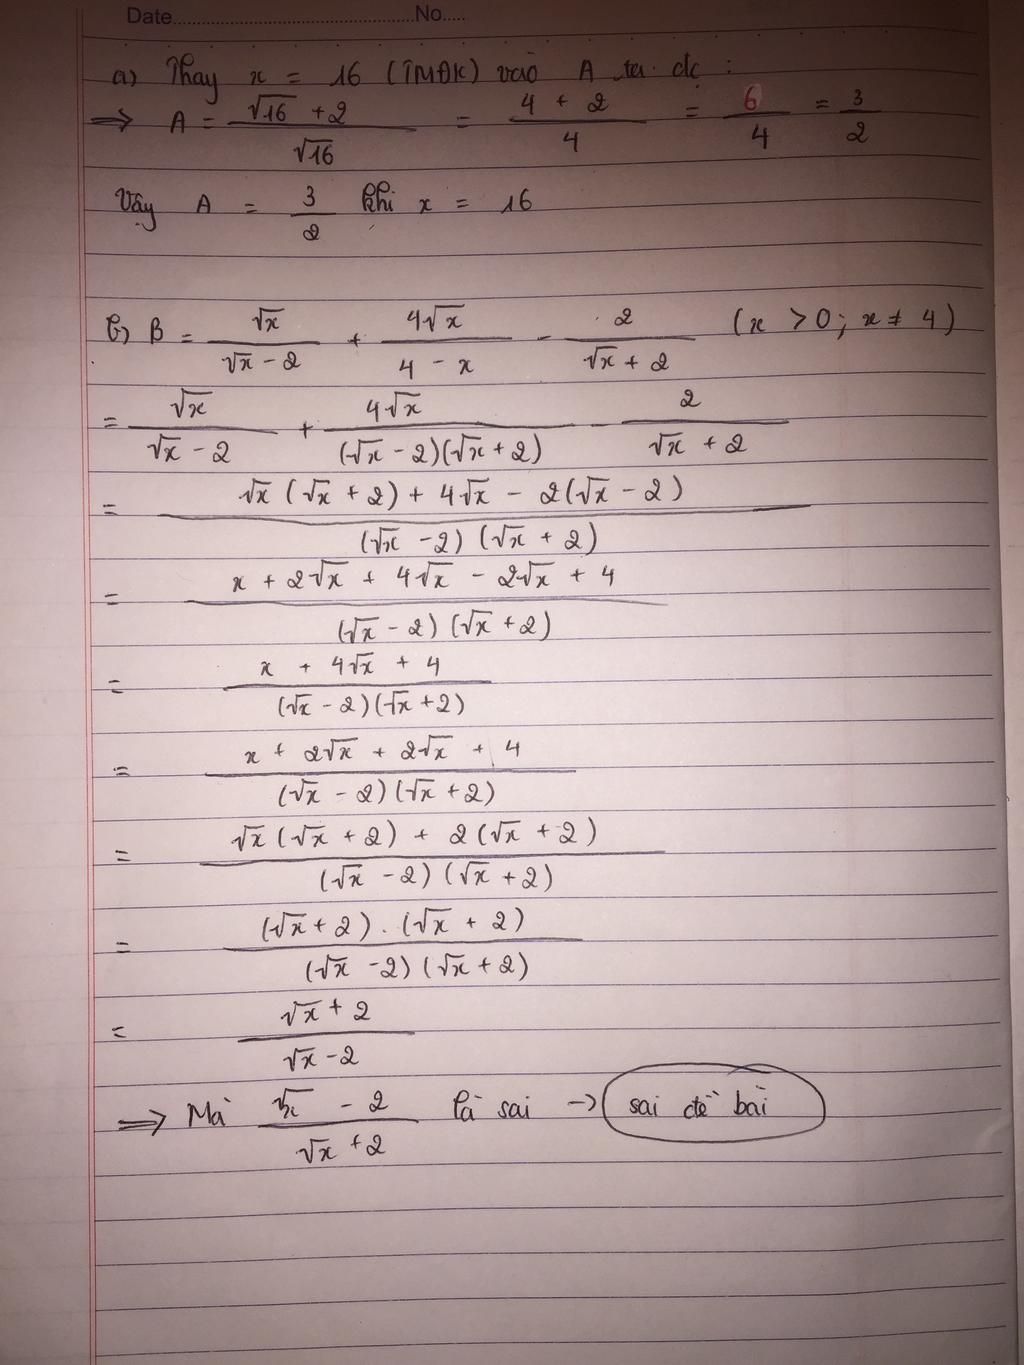 Date...............................No.....
a) Thay x = 16 (TMĐK) vào A ta dc :
=> A = (√16 + 2)/√16 = (4 + 2)/4 = 6/4 = 3/2
Vậy A = 3/2 khi x = 16
b) B = √x/(√x - 2) + 4√x/(4 - x) - 2/(√x + 2) (x > 0; x ≠ 4)
= √x/(√x - 2) + 4√x/((√x - 2)(√x + 2)) - 2/(√x + 2)
= (√x (√x + 2) + 4√x - 2(√x - 2))/((√x - 2)(√x + 2))
= (x + 2√x + 4√x - 2√x + 4)/((√x - 2)(√x + 2))
= (x + 4√x + 4)/((√x - 2)(√x + 2))
= (x + 2√x + 2√x + 4)/((√x - 2)(√x + 2))
= (√x (√x + 2) + 2(√x + 2))/((√x - 2)(√x + 2))
= ((√x + 2) . (√x + 2))/((√x - 2)(√x + 2))
= (√x + 2)/(√x - 2)
=> Mà (√x - 2)/(√x + 2) là sai -> sai đề bài